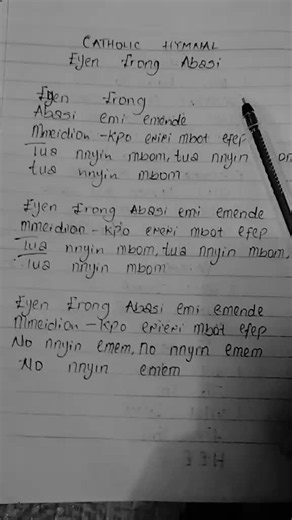 CATHOLIC HYMNAL
Eyen Erong Abasi
Eyen Erong
Abasi emi emende
Mmeidion - Kpo erieri mbot efep
Tua nnyin mbom, tua nnyin
tua nnyin mbom
Eyen Erong Abasi emi emende
mmeidion - kpo erieri mbot efep
Tua nnyin mbom, tua nnyin mbom,
Tua nnyin mbom
Eyen Erong Abasi emi emende
Mmeidion - kpo erieri mbot efep
No nnyin emem, no nnyin emem
No nnyin emem